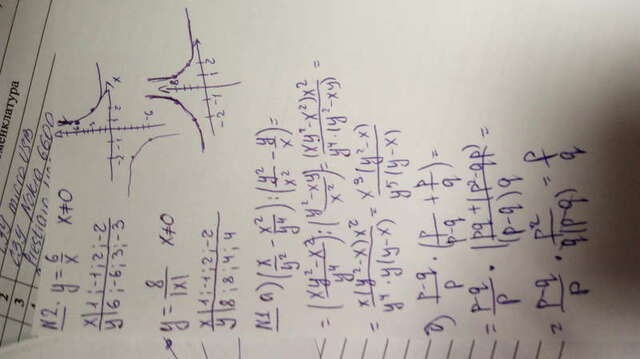 менклатура
2
3
N2. y = 6/x x≠0
x | 1 ; -1 ; 2 ; -2
y | 6 ; -6 ; 3 ; -3
y = 8/|x| x≠0
x | 1 ; -1 ; 2 ; -2
y | 8 ; 8 ; 4 ; 4
N1 a) (x/y² - x²/y⁴) : (y²/x² - y/x) =
= (xy² - x²/y⁴) : (y² - xy/x²) = (xy² - x²)x²/y⁴ · (y² - xy) =
= x(y² - x)x²/y⁴ · y(y - x) = x³(y² - x)/y⁵(y - x)
б) p-q/p · (p/p-q + p/q) =
= p-q/p · (pq + p² - qp)/(p-q)q =
= p-q/p · p²/q(p-q) = p/q